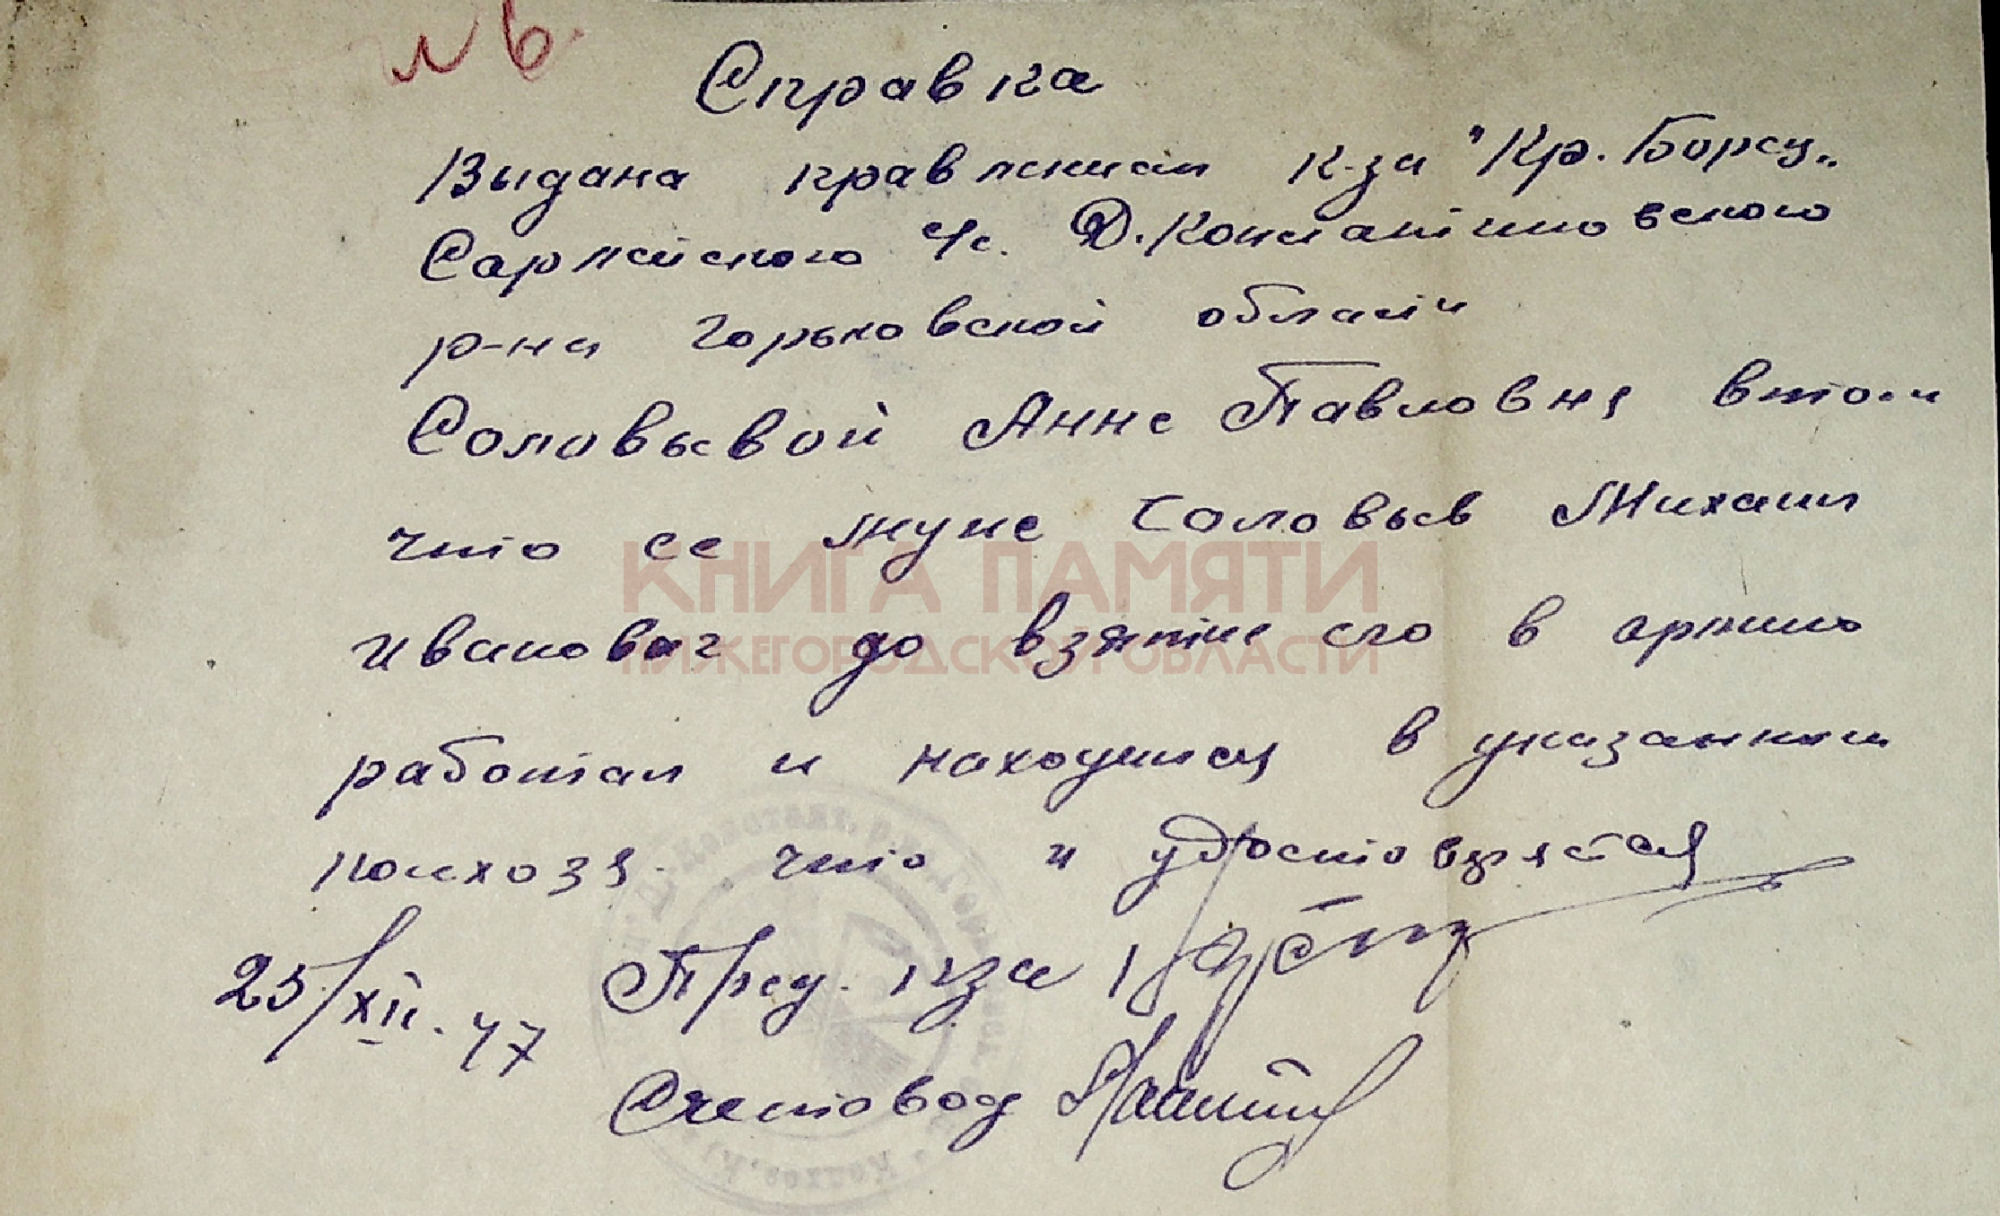 № 6.
Справка
Выдана правлением к-за "Кр. Борец"
Сарлейского с/с. Д. Константиновского
р-на Горьковской области
Соловьевой Анне Павловня втом
что ее муже Соловьев Михаил
Иванович до взятие его в армию
работал и находился в указанном
колхозя. что и удостовѣряется
КНИГА ПАМЯТИ
НИЖЕГОРОДСКОЙ ОБЛАСТИ
25/XII. 47
Пред. кза
Счетовод